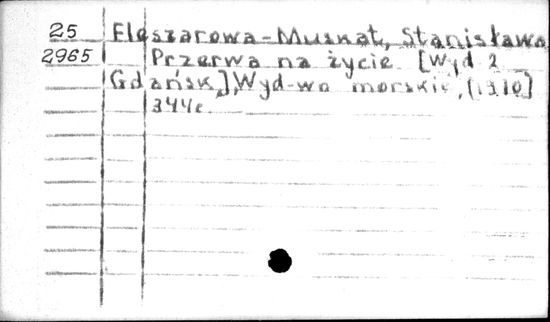 25 Fleszarowa-Muskat, Stanisława
2965 Przerwa na życie. [Wyd 2
Gdańsk,] Wyd-wo morskie, [1970]
344c.